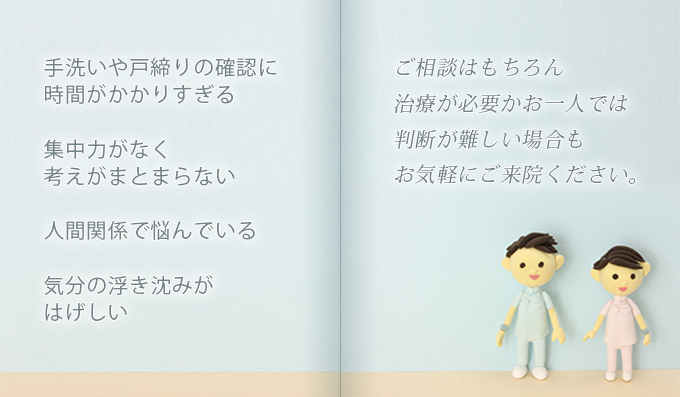 手洗いや戸締りの確認に
時間がかかりすぎる
集中力がなく
考えがまとまらない
人間関係で悩んでいる
気分の浮き沈みが
はげしい
ご相談はもちろん
治療が必要かお一人では
判断が難しい場合も
お気軽にご来院ください。